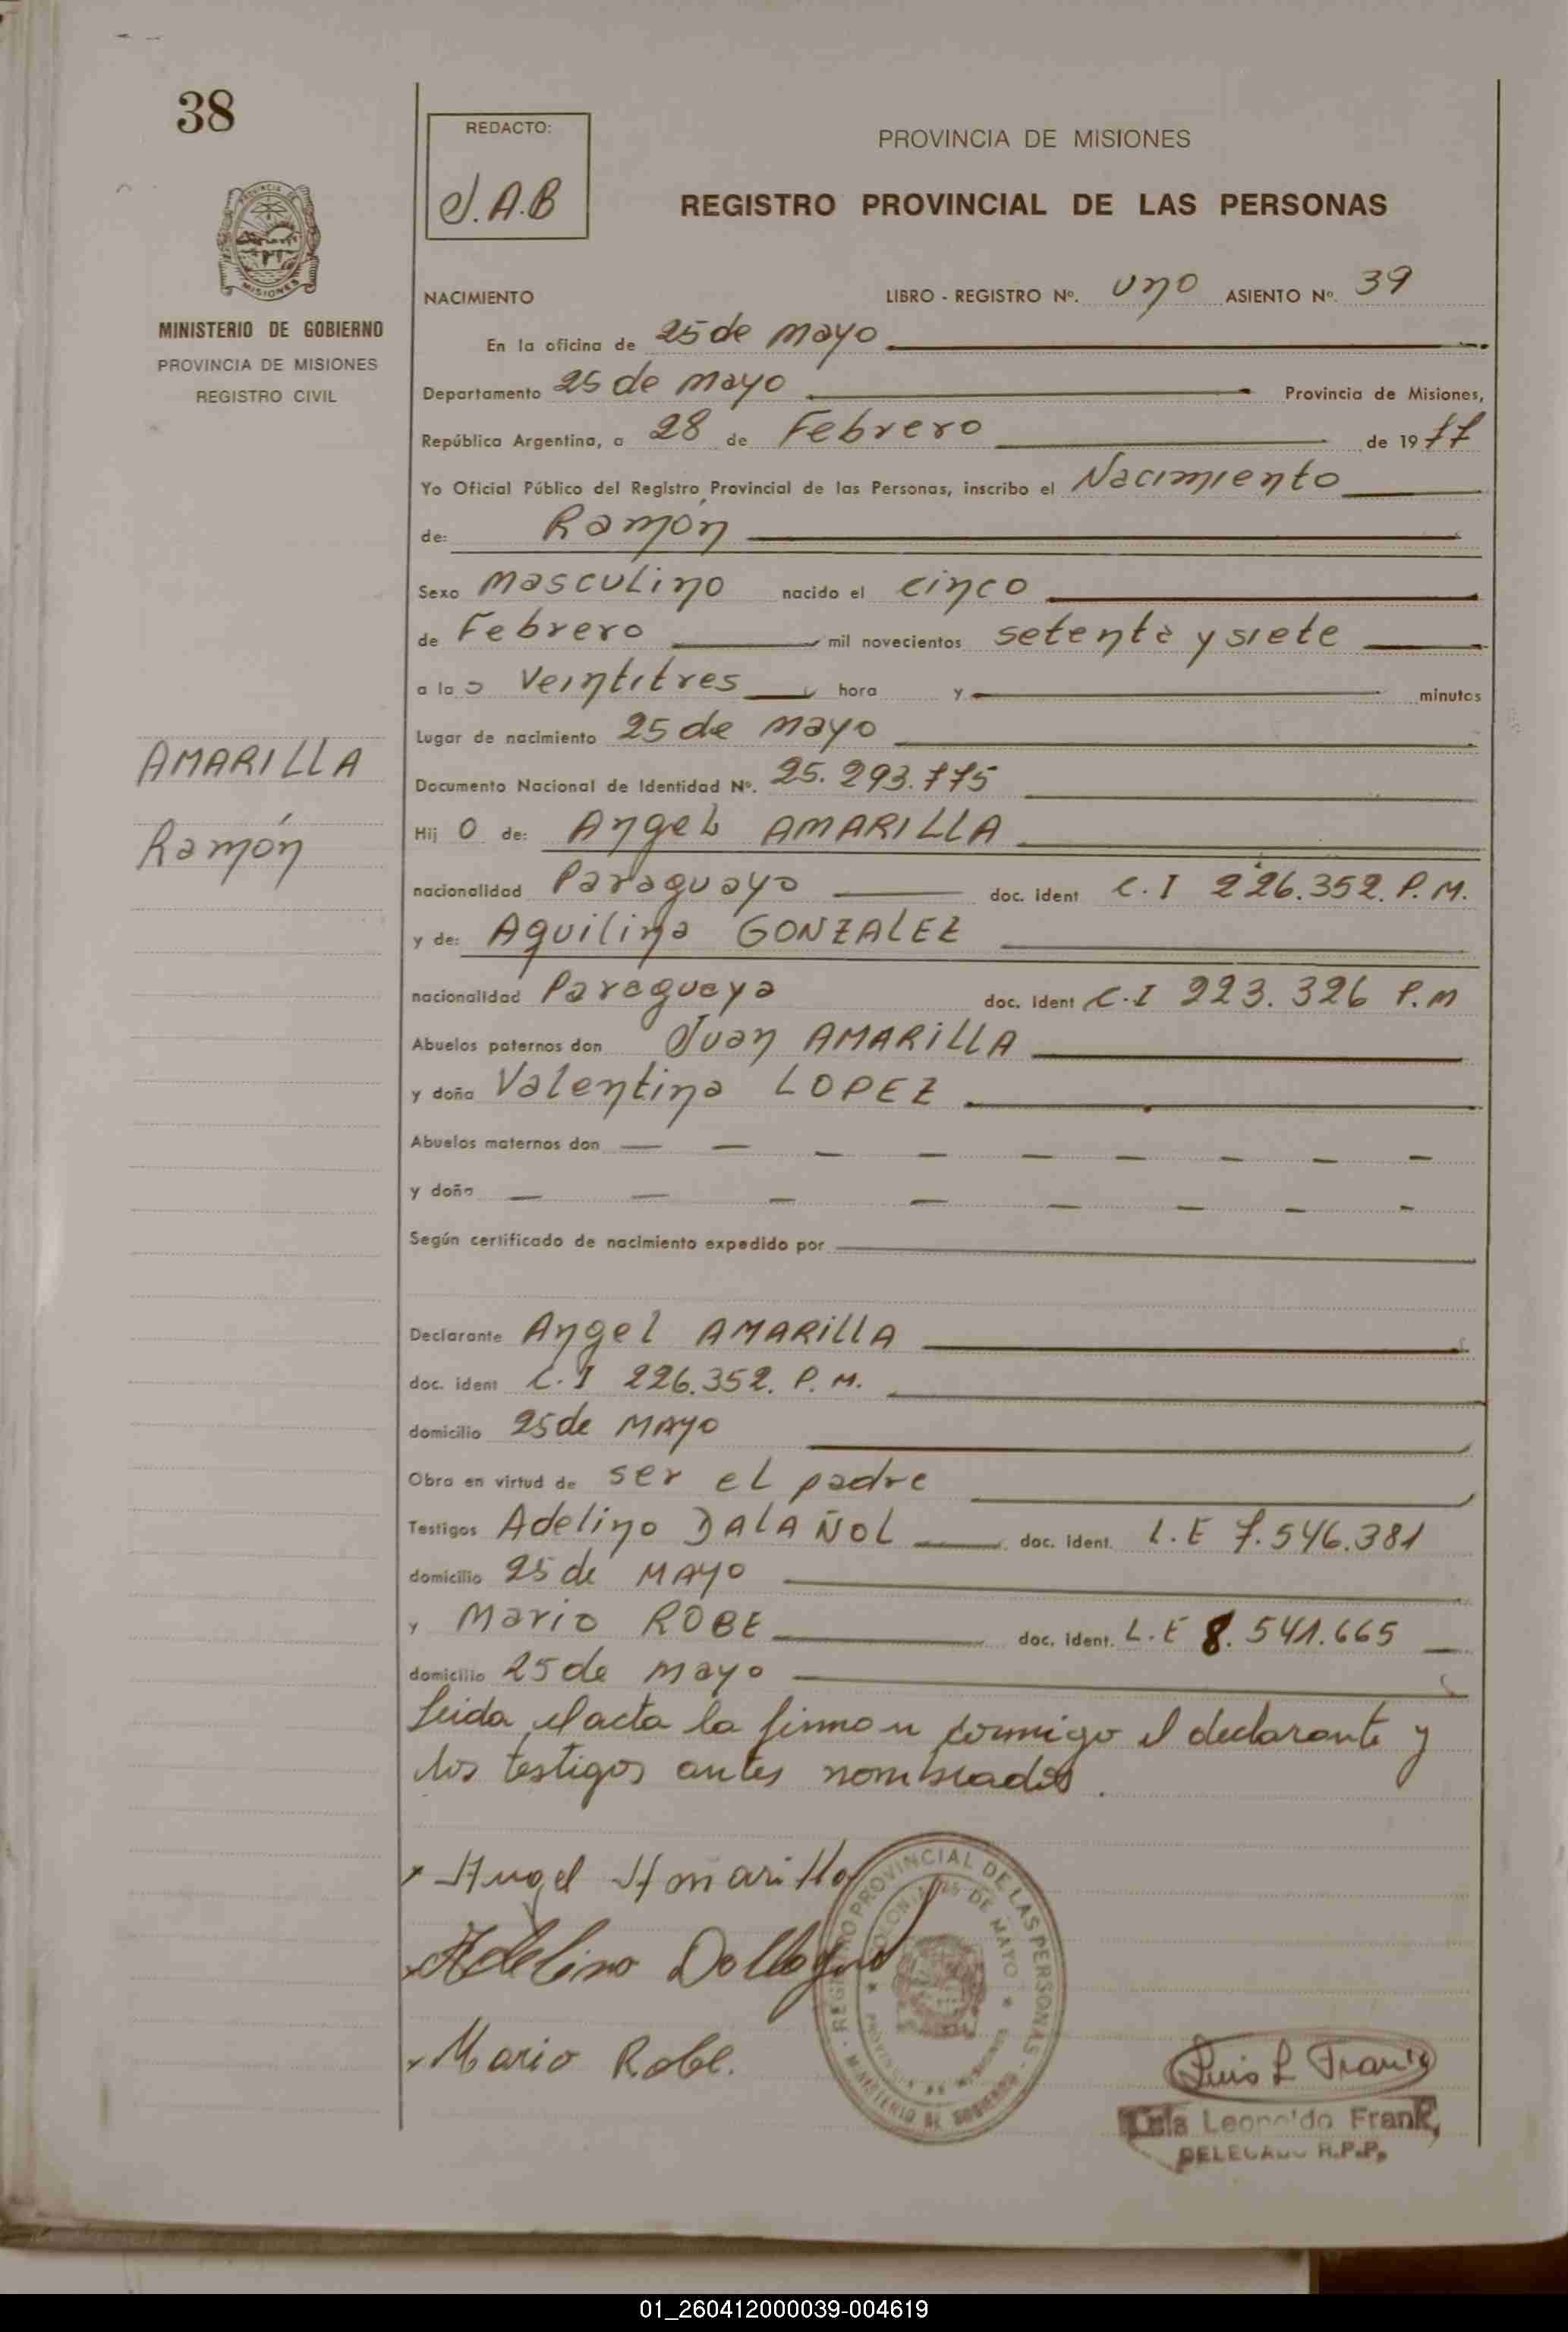 38
REDACTO:
J.A.B
PROVINCIA DE MISIONES
REGISTRO PROVINCIAL DE LAS PERSONAS
MISIONES
MINISTERIO DE GOBIERNO
PROVINCIA DE MISIONES
REGISTRO CIVIL
AMARILLA
Ramón
NACIMIENTO LIBRO - REGISTRO Nº. Uno ASIENTO Nº. 39
En la oficina de 25 de Mayo
Departamento 25 de Mayo Provincia de Misiones,
República Argentina, a 28 de Febrero de 1977
Yo Oficial Público del Registro Provincial de las Personas, inscribo el Nacimiento
de: Ramón
Sexo Masculino nacido el cinco
de Febrero mil novecientos setenta y siete
a las Veintitres hora y minutos
Lugar de nacimiento 25 de Mayo
Documento Nacional de Identidad Nº. 25.293.775
Hij O de: Angel AMARILLA
nacionalidad Paraguayo doc. ident C.I 226.352. P.M.
y de: Aquilina GONZALEZ
nacionalidad Paraguaya doc. ident C.I 223.326 P.M
Abuelos paternos don Juan AMARILLA
y doña Valentina LOPEZ
Abuelos maternos don — — — — — — — — —
y doña — — — — — — — —
Según certificado de nacimiento expedido por
Declarante Angel AMARILLA
doc. ident C.I 226.352. P.M.
domicilio 25 de MAYO
Obra en virtud de ser el padre
Testigos Adelino DALAÑOL doc. ident. L.E 7.546.381
domicilio 25 de MAYO
y Mario ROBE doc. ident. L.E 8.541.665
domicilio 25 de Mayo
Leida el acta la firman conmigo el declarante y
los testigos antes nombrados.
Angel Amarilla
Adelino
Mario Robe.
REGISTRO PROVINCIAL DE LAS PERSONAS - MINISTERIO DE GOBIERNO -
COLONIA 25 DE MAYO * PROVINCIA DE MISIONES *
Luis L Frank
Luis Leopoldo Frank,
DELEGADO R.P.P.
01_260412000039-004619